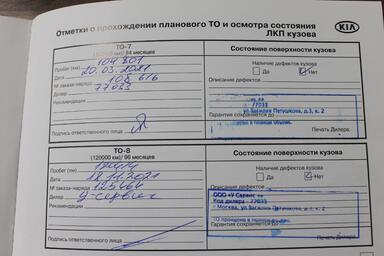 Отметки о прохождении планового ТО и осмотра состояния
ЛКП кузова
KIA
ТО-7
(105000 км)/ 84 месяцев
Пробег (км) 104 801
Дата 20.03.2021
№ заказ-наряда 108 616
Дилер 77033
Рекомендации
Подпись ответственного лица
Состояние поверхности кузова
Наличие дефектов кузова
Да Нет
Описание дефектов
77033
ул.Василия Петушкова, д.3, к. 2
Гарантия сохраняется до
Печать Дилера
ТО-8
(120000 км)/ 96 месяцев
Пробег (км)
Дата 18.11.2021
№ заказ-наряда 125464
Дилер У-Сервис
Рекомендации
Подпись ответственного лица
Состояние поверхности кузова
Наличие дефектов кузова
Да Нет
Описание дефектов
ООО «У Сервис +»
Код дилера - 77033
г. Москва, ул Василия Петушкова, д. 3, к. 2
Гарантия сохраняется до
ТО проведено в полном объеме.
Печать Дилера